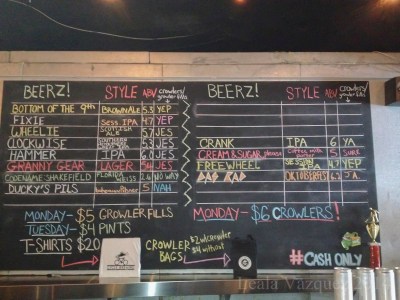 BEERZ! STYLE ABV crowlers/growler fills
BOTTOM OF THE 9th BROWN ALE 5.3 YEP
FIXIE Sess. IPA 4.7 YEP
WHEELIE SCOTTISH ALE 5.7 YES
CLOCKWISE 5.3 YES
HAMMER IPA 6.0 YES
GRANNY GEAR LAGER YES
SHAKEFIELD FLORIDA WEISS 2.6 NO WAY
DUCKY'S PILS BohemianPilsner 5 NAH
MONDAY- $5 GROWLER FILLS
TUESDAY- $4 PINTS
T-SHIRTS $20
BEERZ! STYLE ABV crowlers/growler fills
CRANK IPA 6 YA
CREAM & SUGAR please coffee milk 5 SURE
FREEWHEEL SESSION 4.7 YEP
OKTOBERFEST JA
MONDAY- $6 CROWLERS!
CROWLER BAGS
$2 w/crowler
$4 without
#CASH ONLY
Leala Vazquez